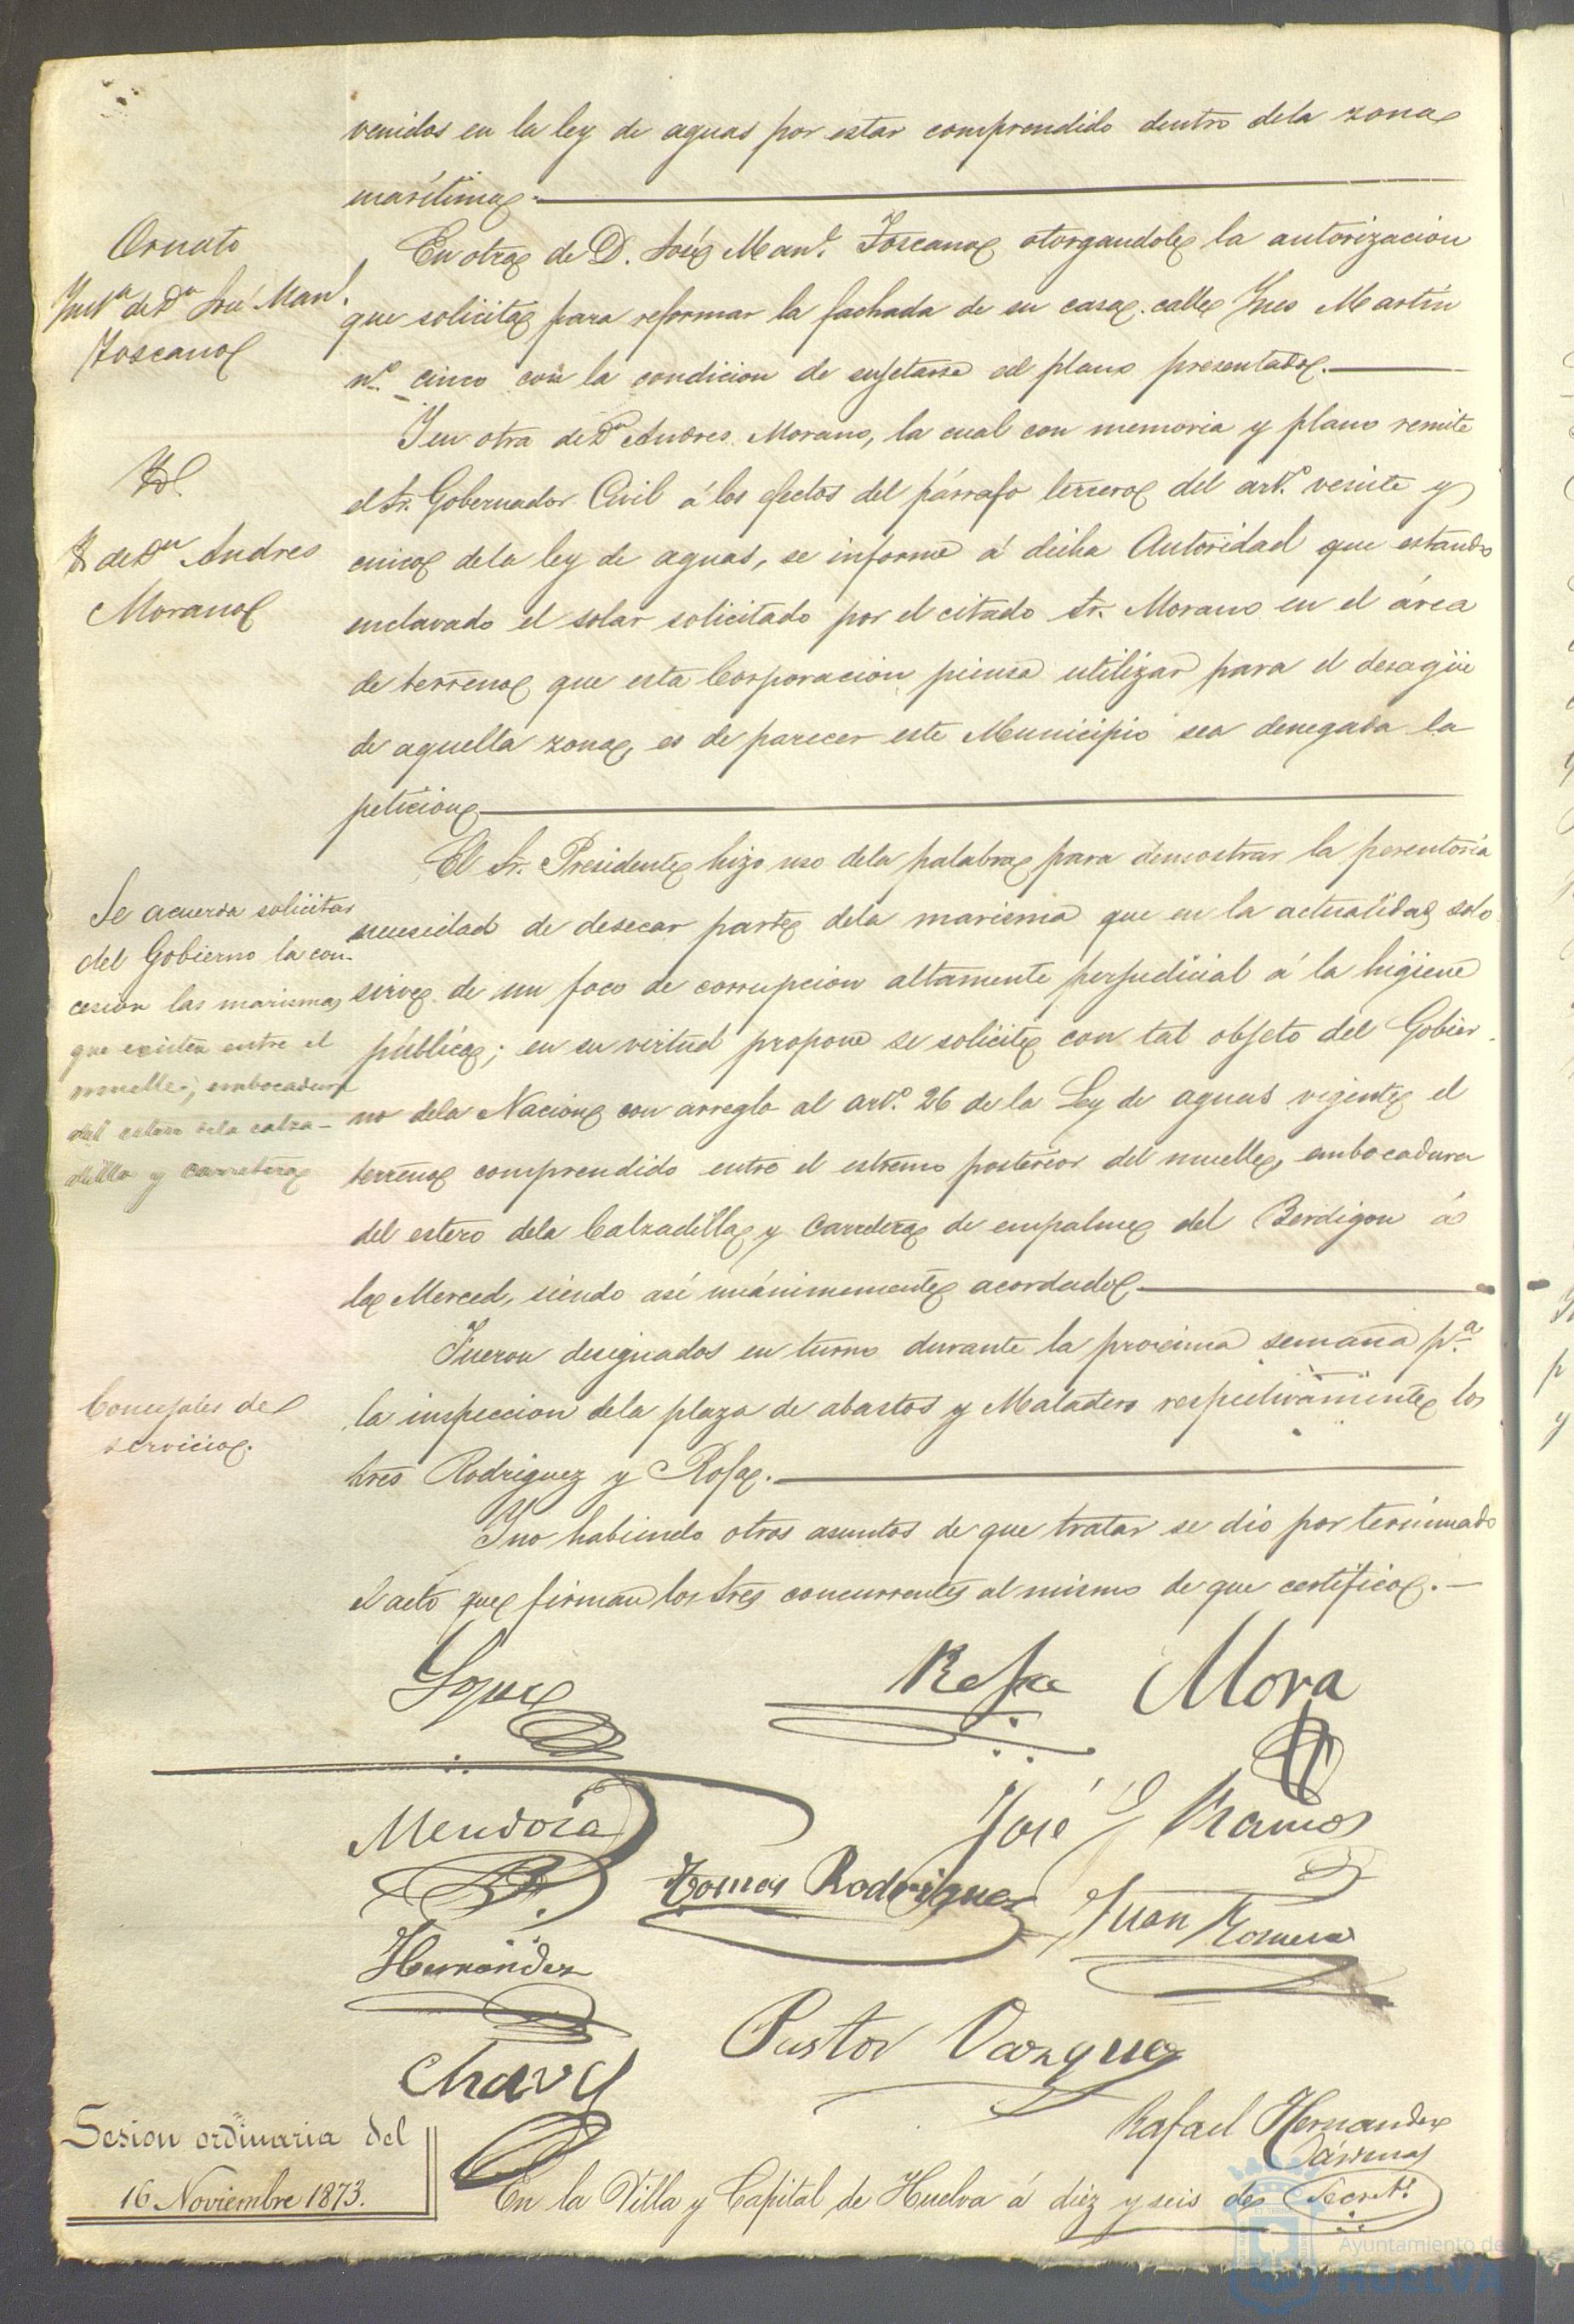 venidos en la ley de aguas por estar comprendido dentro dela zona
marítima.
Ornato
Inst.ª de Dⁿ José Man.l
Toscano
En otra de D. José Man.l Toscano otorgandole la autorizacion
que solicita para reformar la fachada de su casa calle Ines Martin
nº. cinco con la condicion de sujetarse al plano presentado.
Id.
Y. de Dⁿ Andres
Morano
Y en otra de Dⁿ Andres Morano, la cual con memoria y plano remite
el Sr. Gobernador Civil á los efectos del párrafo tercero del artº. veinte y
cinco dela ley de aguas, se informe á dicha Autoridad que estando
enclavado el solar solicitado por el citado Sr. Morano en el área
de terreno que esta Corporacion piensa utilizar para el desagüe
de aquella zona, es de parecer este Municipio sea denegada la
peticion
Se acuerda solicitar
del Gobierno la con-
cesion las marismas
que existen entre el
muelle, embocadura
del estero dela calza-
dilla y carretera
El Sr. Presidente hizo uso dela palabra para demostrar la perentoria
necesidad de desecar parte dela marisma que en la actualidad solo
sirve de un foco de corrupcion altamente perjudicial á la higiene
pública; en su virtud propone se solicite con tal objeto del Gobier-
no dela Nacion con arreglo al artº. 26 de la Ley de aguas vigente el
terreno comprendido entre el estremo posterior del muelle, embocadura
del estero dela Calzadilla y Carretera de empalme del Berdigon á
la Merced, siendo así unánimemente acordado
Concejales de
servicio.
Fueron designados en turno durante la proxima semana p.ª
la inspeccion dela plaza de abastos y Matadero respectivamente los
Sres Rodriguez y Rosa.
Y no habiendo otros asuntos de que tratar se dió por terminado
el acto que firman los Sres concurrentes al mismo de que certifico.
Rosa Mora
Mendoza
José G Ramos
Tomas Rodriguez
Juan Romero
Hernandez
Pastor Vazquez
Chavez
Rafael Hernandez
Cárdenas
Secretº.
Sesion ordinaria del
16 Noviembre 1873.
En la Villa y Capital de Huelva á diez y seis de
Ayuntamiento de
HUELVA